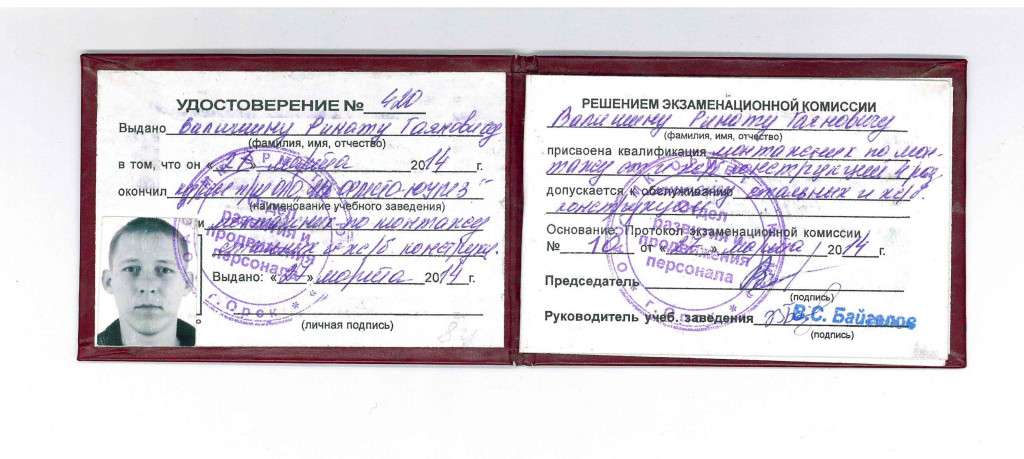 УДОСТОВЕРЕНИЕ № 420
Выдано Валишину Ринату Гаяновичу
(фамилия, имя, отчество)
в том, что он «27» марта 2014 г.
окончил курсы при ОАО
(наименование учебного заведения)
и монтажник по монтажу
стальных и ж/б констр.
Выдано: «27» марта 2014 г.
(личная подпись)
отдел
развития и
продвижения
персонала
г. Орск
РЕШЕНИЕМ ЭКЗАМЕНАЦИОННОЙ КОМИССИИ
Валишину Ринату Гаяновичу
(фамилия, имя, отчество)
присвоена квалификация монтажник по мон-
тажу стал. ж/б конструкций
допускается к обслуживанию стальных и ж/б
конструкций
Основание: Протокол экзаменационной комиссии
№ 10 от «27» марта 2014 г.
Председатель
(подпись)
Руководитель учеб. заведения В.С. Байгелов
(подпись)
отдел
развития и
продвижения
персонала